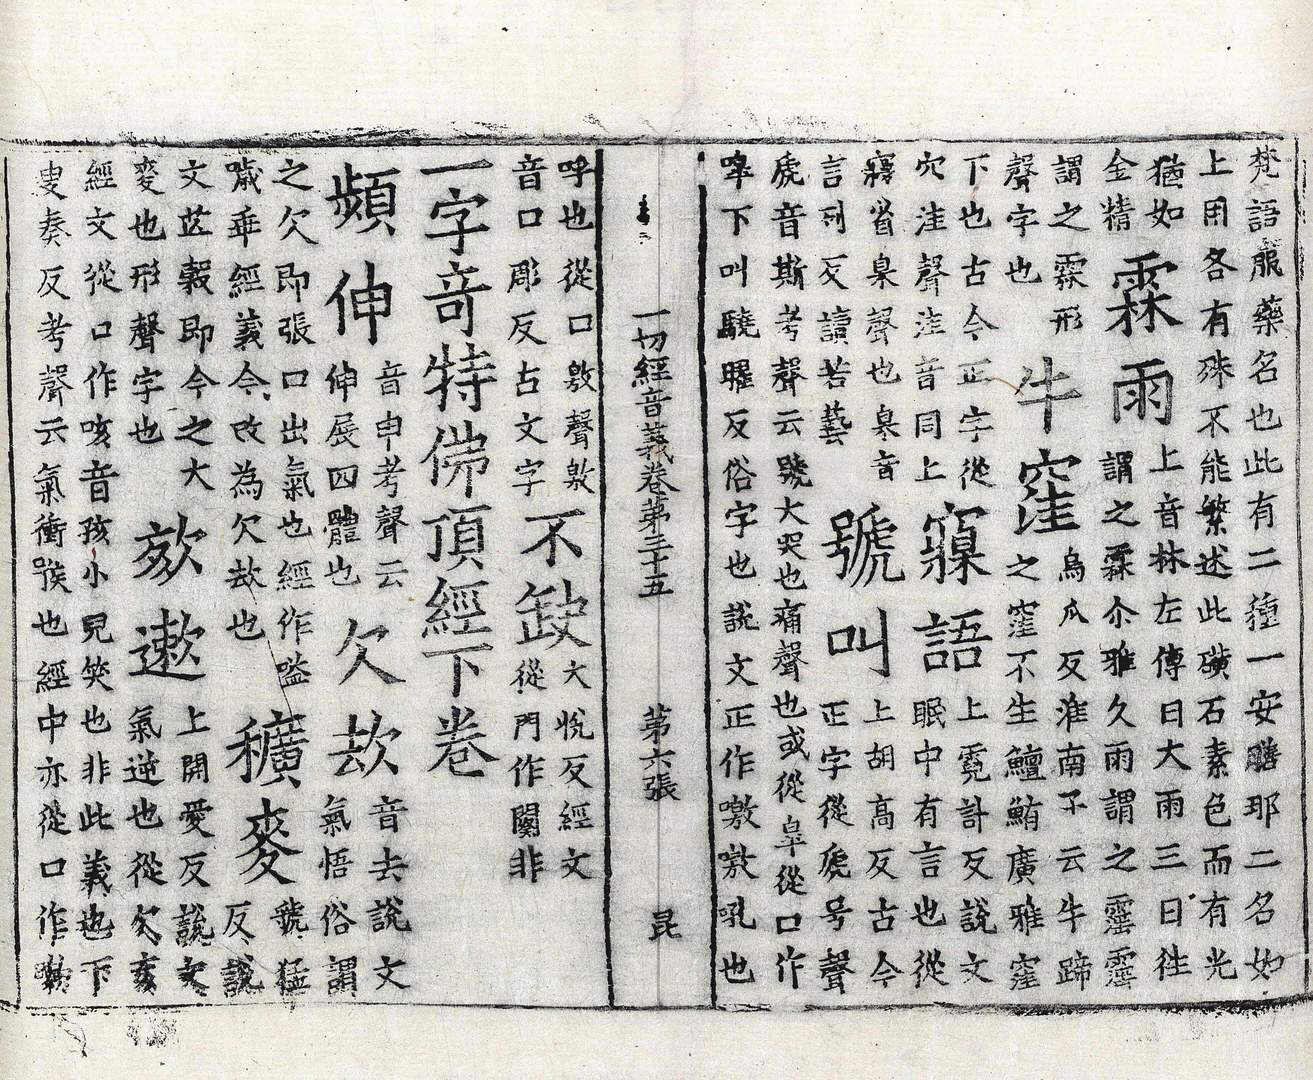 梵語服藥名也此有二種一安膳耶二名如
上用各有殊不能繁述此礦石素色而有光
猶如
金精
霖雨
上音林左傳曰大雨三日往
謂之霖尒雅久雨謂之霪霪
謂之霖形
聲字也
牛窪
烏瓜反淮南子云牛蹄
之窪不生鱣鮪廣雅窪
下也古今正字從
穴洼聲洼音同上
寱語
上霓計反說文
眠中有言也從
㝱省臬聲也臬音
言列反讀若藝
號叫
上胡高反古今
正字從虎号聲
虎音斯考聲云號大哭也痛聲也或從皐從口作
嘷下叫驍曜反俗字也說文正作噭噭吼也
一切經音義卷第三十五 第六張 昆
呼也從口敫聲敫
音口彫反古文字
不缺
犬悅反經文
從門作闋非
一字奇特佛頂經下卷
頻伸
音申考聲云
伸展四體也
欠㰦
音去說文
氣悟俗謂
之欠即張口出氣也經作嗌
噦乖經義今改為欠㰦也
穬麥
虢猛
反說
文芒穀即今之大
麥也形聲字也
欬遬
上開愛反說文
氣逆也從欠亥
經文從口作咳音孩小兒笑也非此義也下
叟奏反考聲云氣衝喉也經中亦從口作嗽